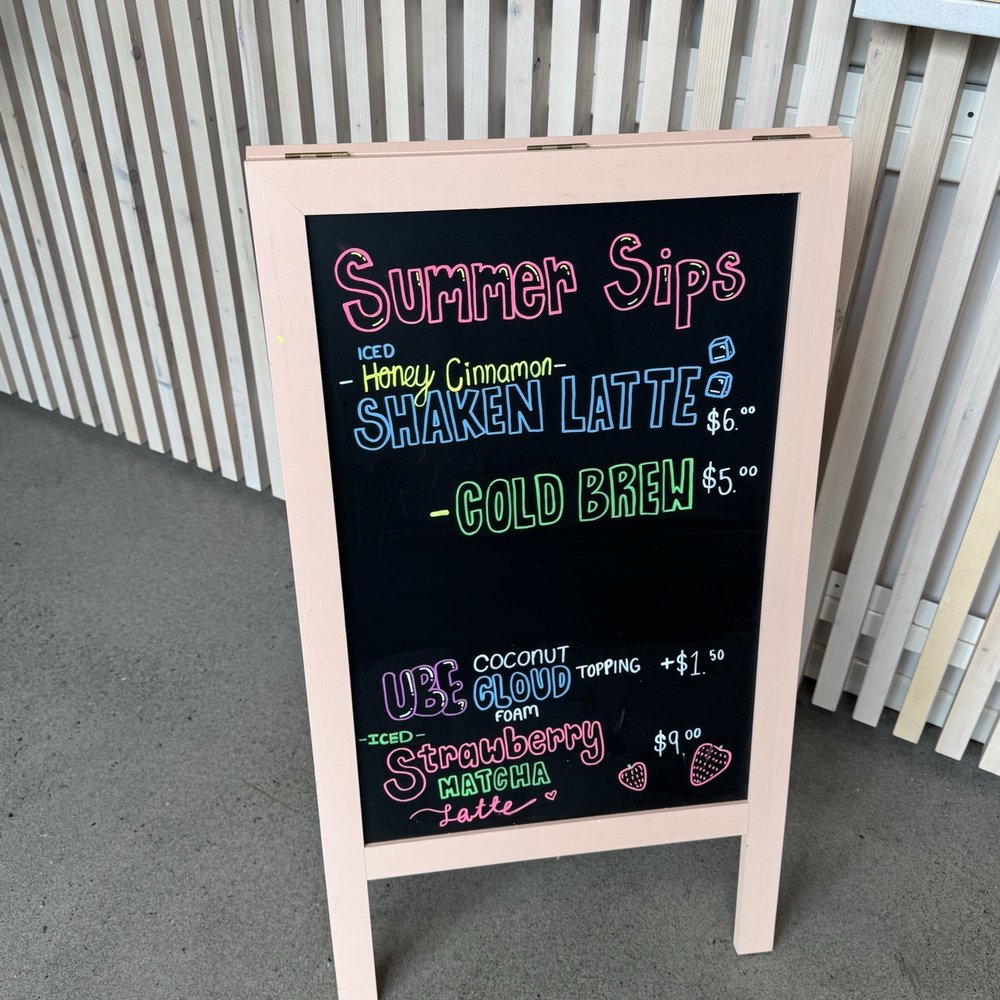 Summer Sips
ICED
- Honey Cinnamon -
SHAKEN LATTE $6.00
- COLD BREW $5.00
UBE COCONUT CLOUD FOAM TOPPING +$1.50
-ICED-
Strawberry $9.00
MATCHA
Latte